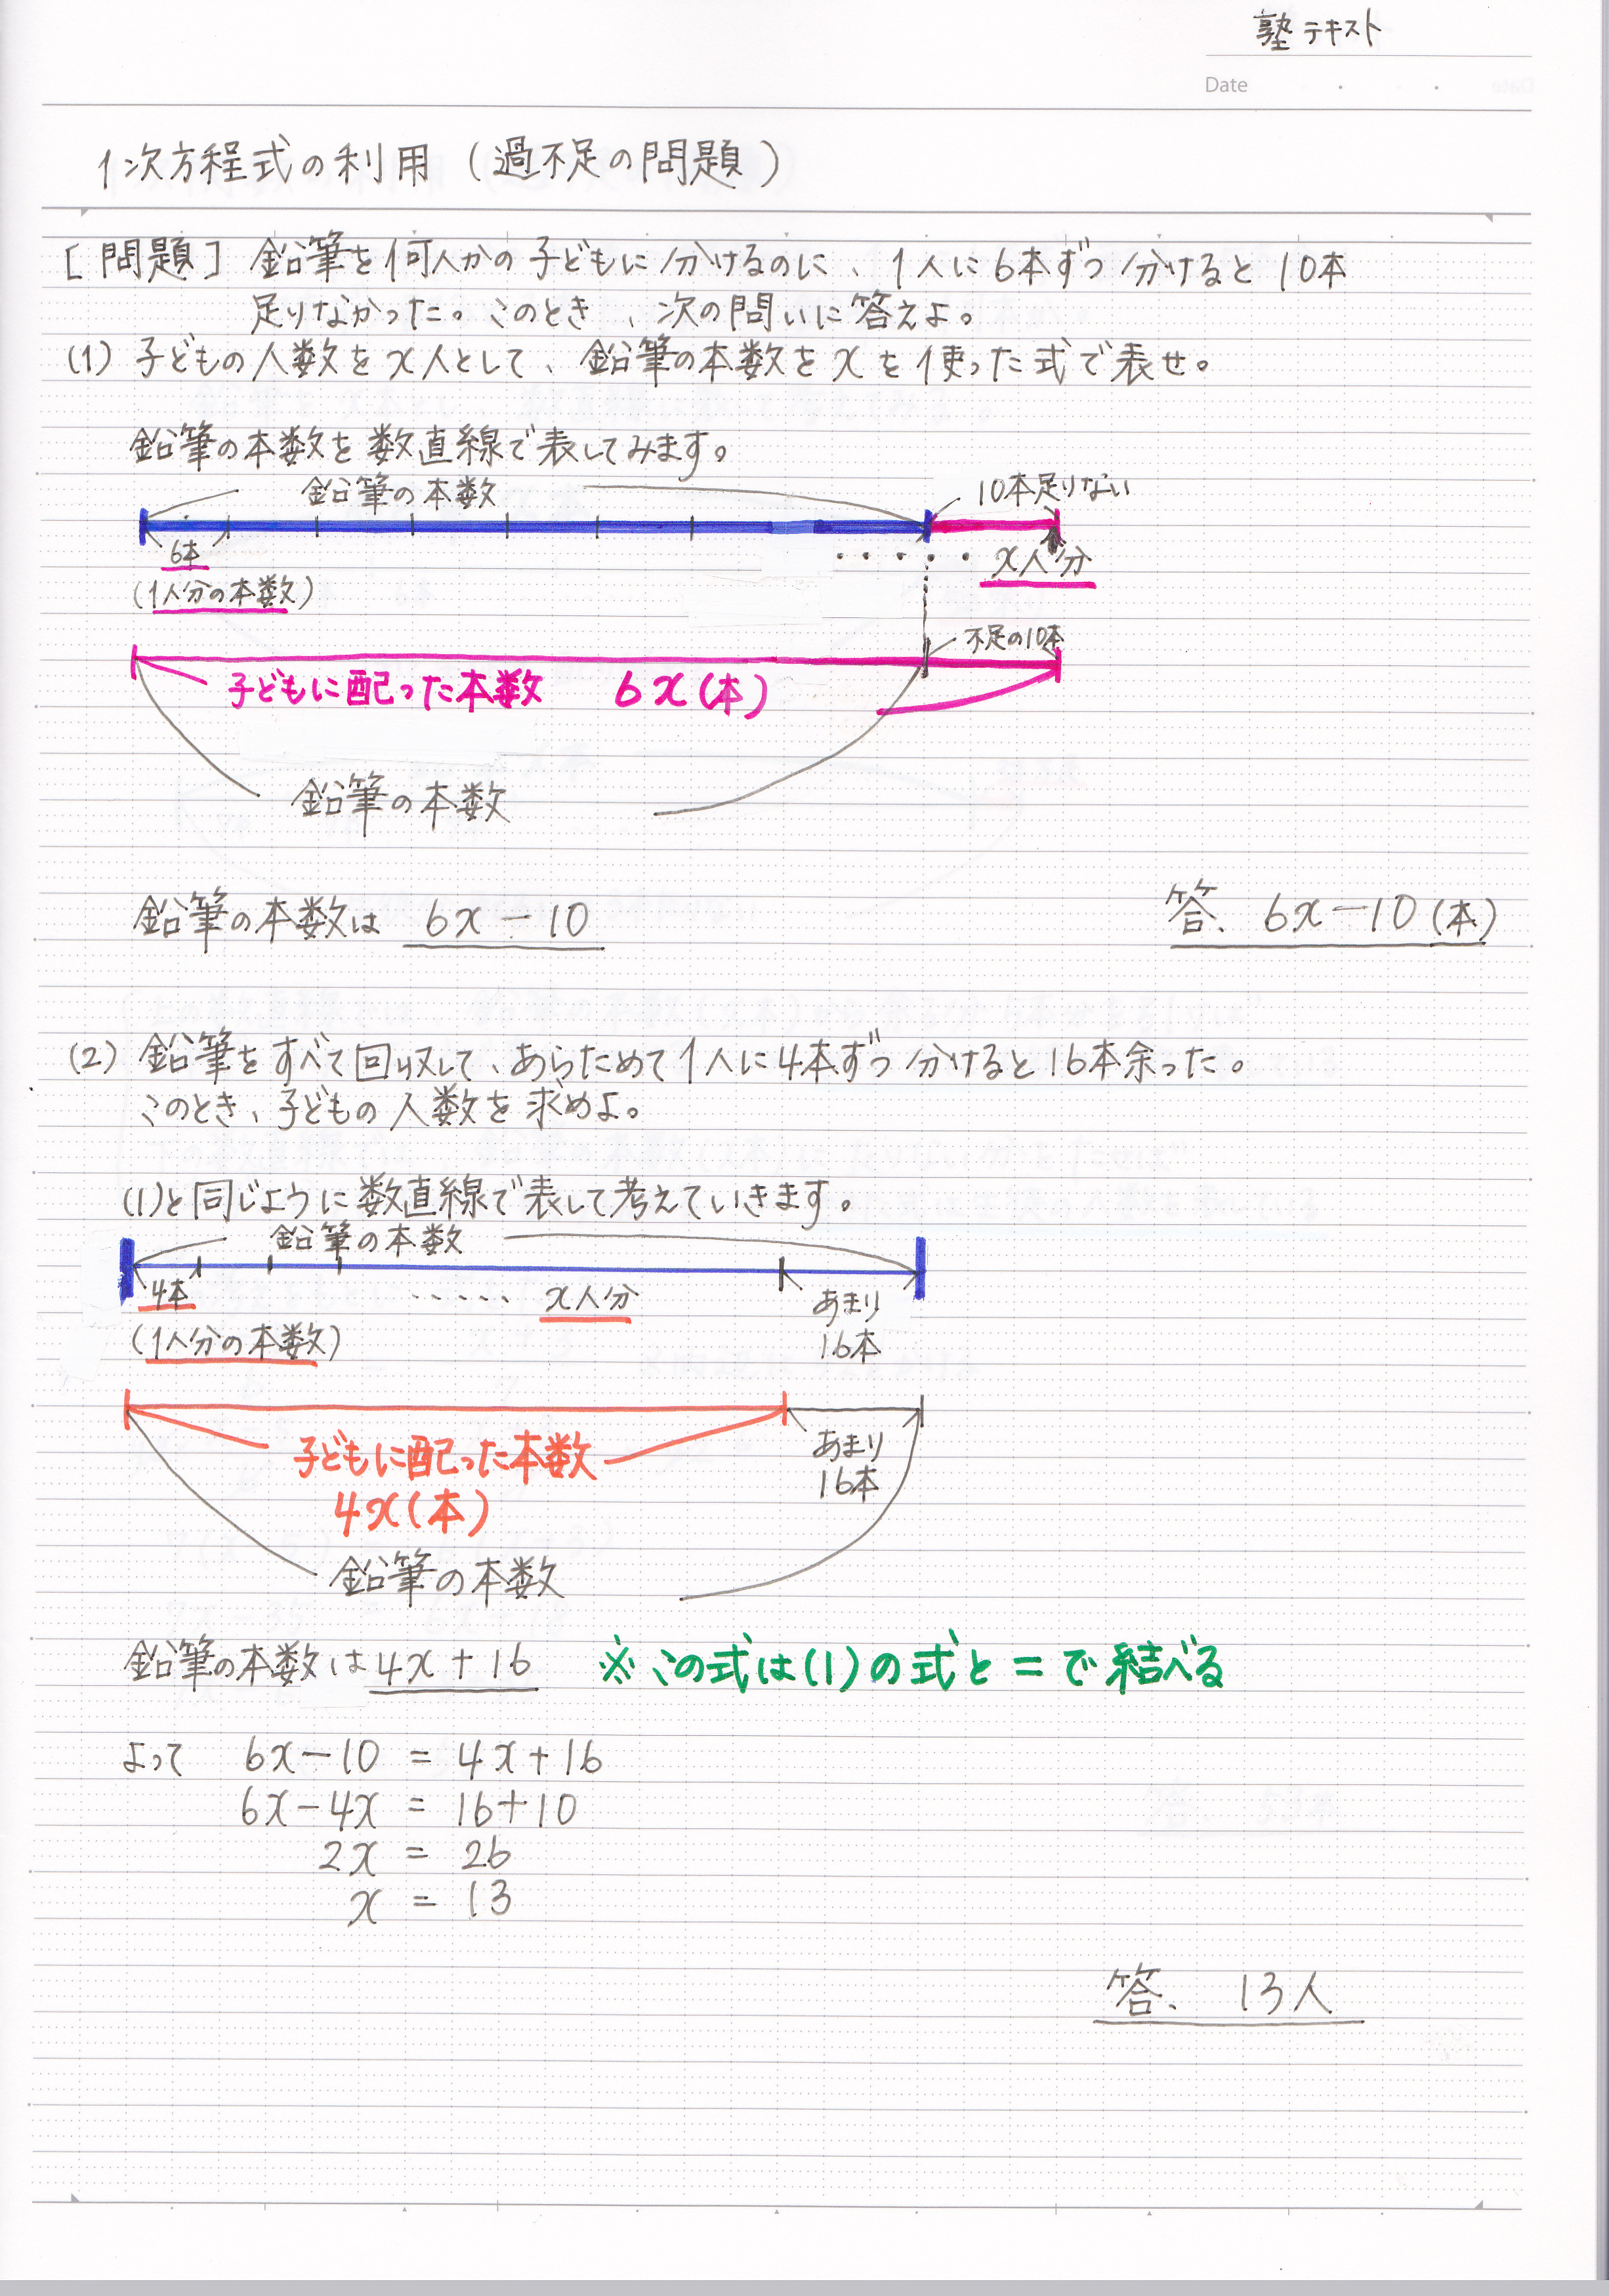 塾テキスト
Date
1次方程式の利用(過不足の問題)
[問題] 鉛筆を何人かの子どもに分けるのに、1人に6本ずつ分けると10本
足りなかった。このとき、次の問いに答えよ。
(1) 子どもの人数をx人として、鉛筆の本数をxを使った式で表せ。
鉛筆の本数を数直線で表してみます。
鉛筆の本数 10本足りない
6本 ・・・・・ x人分
(1人分の本数)
不足の10本
子どもに配った本数 6x(本)
鉛筆の本数
鉛筆の本数は 6x-10 答、6x-10(本)
(2) 鉛筆をすべて回収して、あらためて1人に4本ずつ分けると16本余った。
このとき、子どもの人数を求めよ。
(1)と同じように数直線で表して考えていきます。
鉛筆の本数
4本 ・・・・・ x人分 あまり
(1人分の本数) 16本
子どもに配った本数 あまり
4x(本) 16本
鉛筆の本数
鉛筆の本数は4x+16 ※この式は(1)の式と=で結べる
よって 6x-10 = 4x+16
6x-4x = 16+10
2x = 26
x = 13
答、 13人